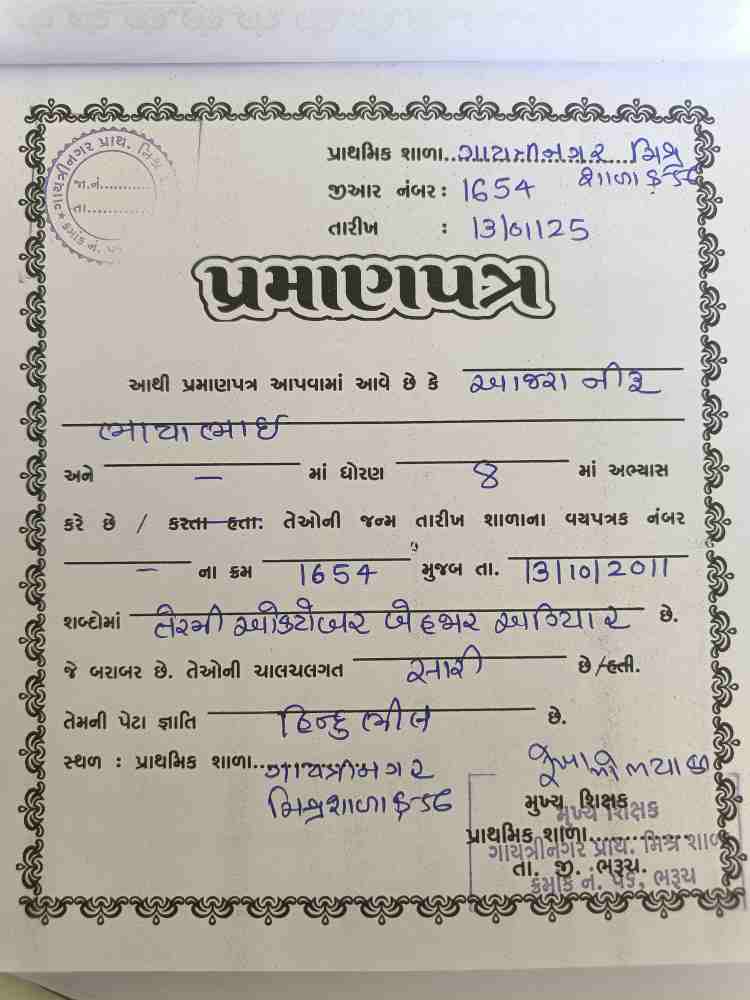 ગાયત્રીનગર પ્રાથ. મિશ્ર
જા.નં...........
તા............
ક્રમાંક નં.
પ્રાથમિક શાળા ગાયત્રીનગર મિશ્ર
શાળા ક્ર-56
જીઆર નંબર : 1654
તારીખ : 13/01/25
પ્રમાણપત્ર
આથી પ્રમાણપત્ર આપવામાં આવે છે કે
ભાયાભાઈ
અને – માં ધોરણ 8 માં અભ્યાસ
કરે છે / કરતા હતા: તેઓની જન્મ તારીખ શાળાના વયપત્રક નંબર
– ના ક્રમ 1654 મુજબ તા. 13/10/2011
શબ્દોમાં તેરમી ઓક્ટોબર બે હજાર અગિયાર છે.
જે બરાબર છે. તેઓની ચાલચલગત સારી છે/હતી.
તેમની પેટા જ્ઞાતિ હિન્દુ ભીલ છે.
સ્થળ : પ્રાથમિક શાળા ગાયત્રીનગર
મિશ્રશાળા ક્ર-56
મુખ્ય શિક્ષક
પ્રાથમિક શાળા...............
તા. જી. ભરૂચ.
મુખ્ય શિક્ષક
ગાયત્રીનગર પ્રાથ. મિશ્ર શાળા
ક્રમાંક નં. ૫૬, ભરૂચ